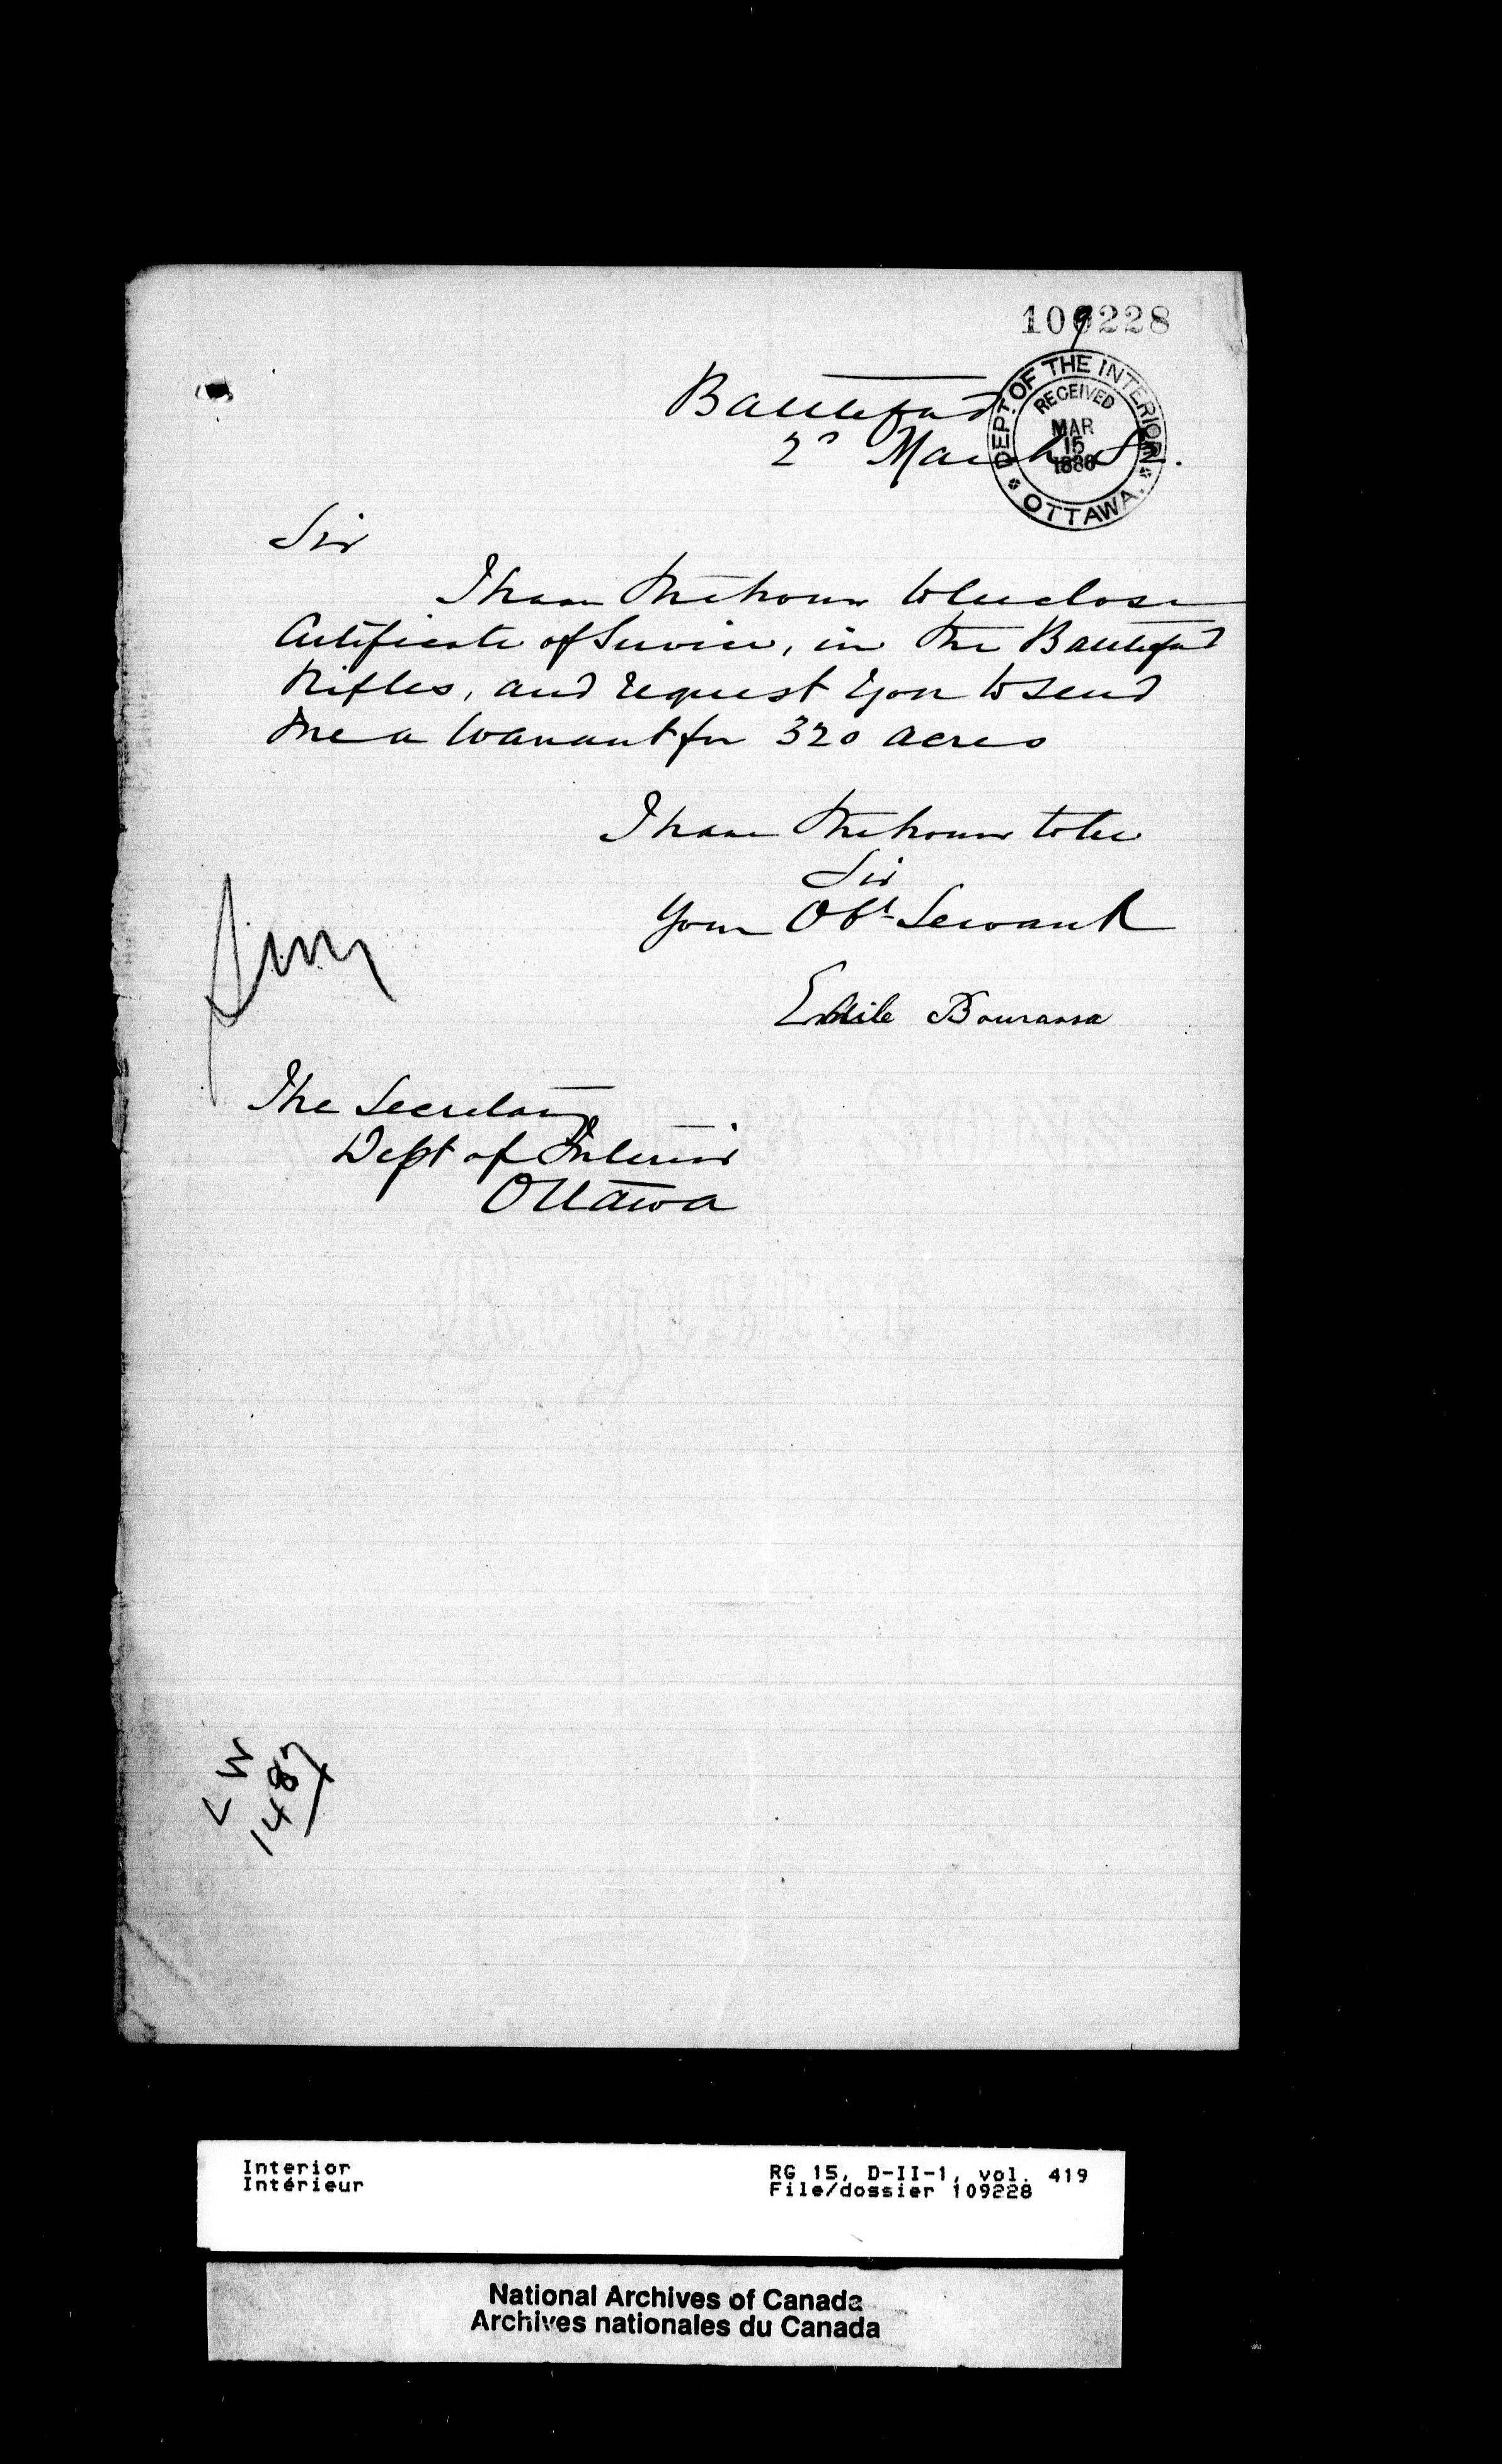 109228
Battleford
2d March 86.
DEPT. OF THE INTERIOR
RECEIVED
MAR
15
1886
OTTAWA.
Sir
I have the honor to enclose
Certificate of Service, in the Battleford
Rifles, and request you to send
me a Warrant for 320 acres
I have the honor to be
Sir
Your Obt Servant
Bourassa
The Secretary
Dept of Interior
Ottawa
Register
L W
1487
Interior
Intérieur
RG 15, D-II-1, vol. 419
File/dossier 109228
National Archives of Canada
Archives nationales du Canada